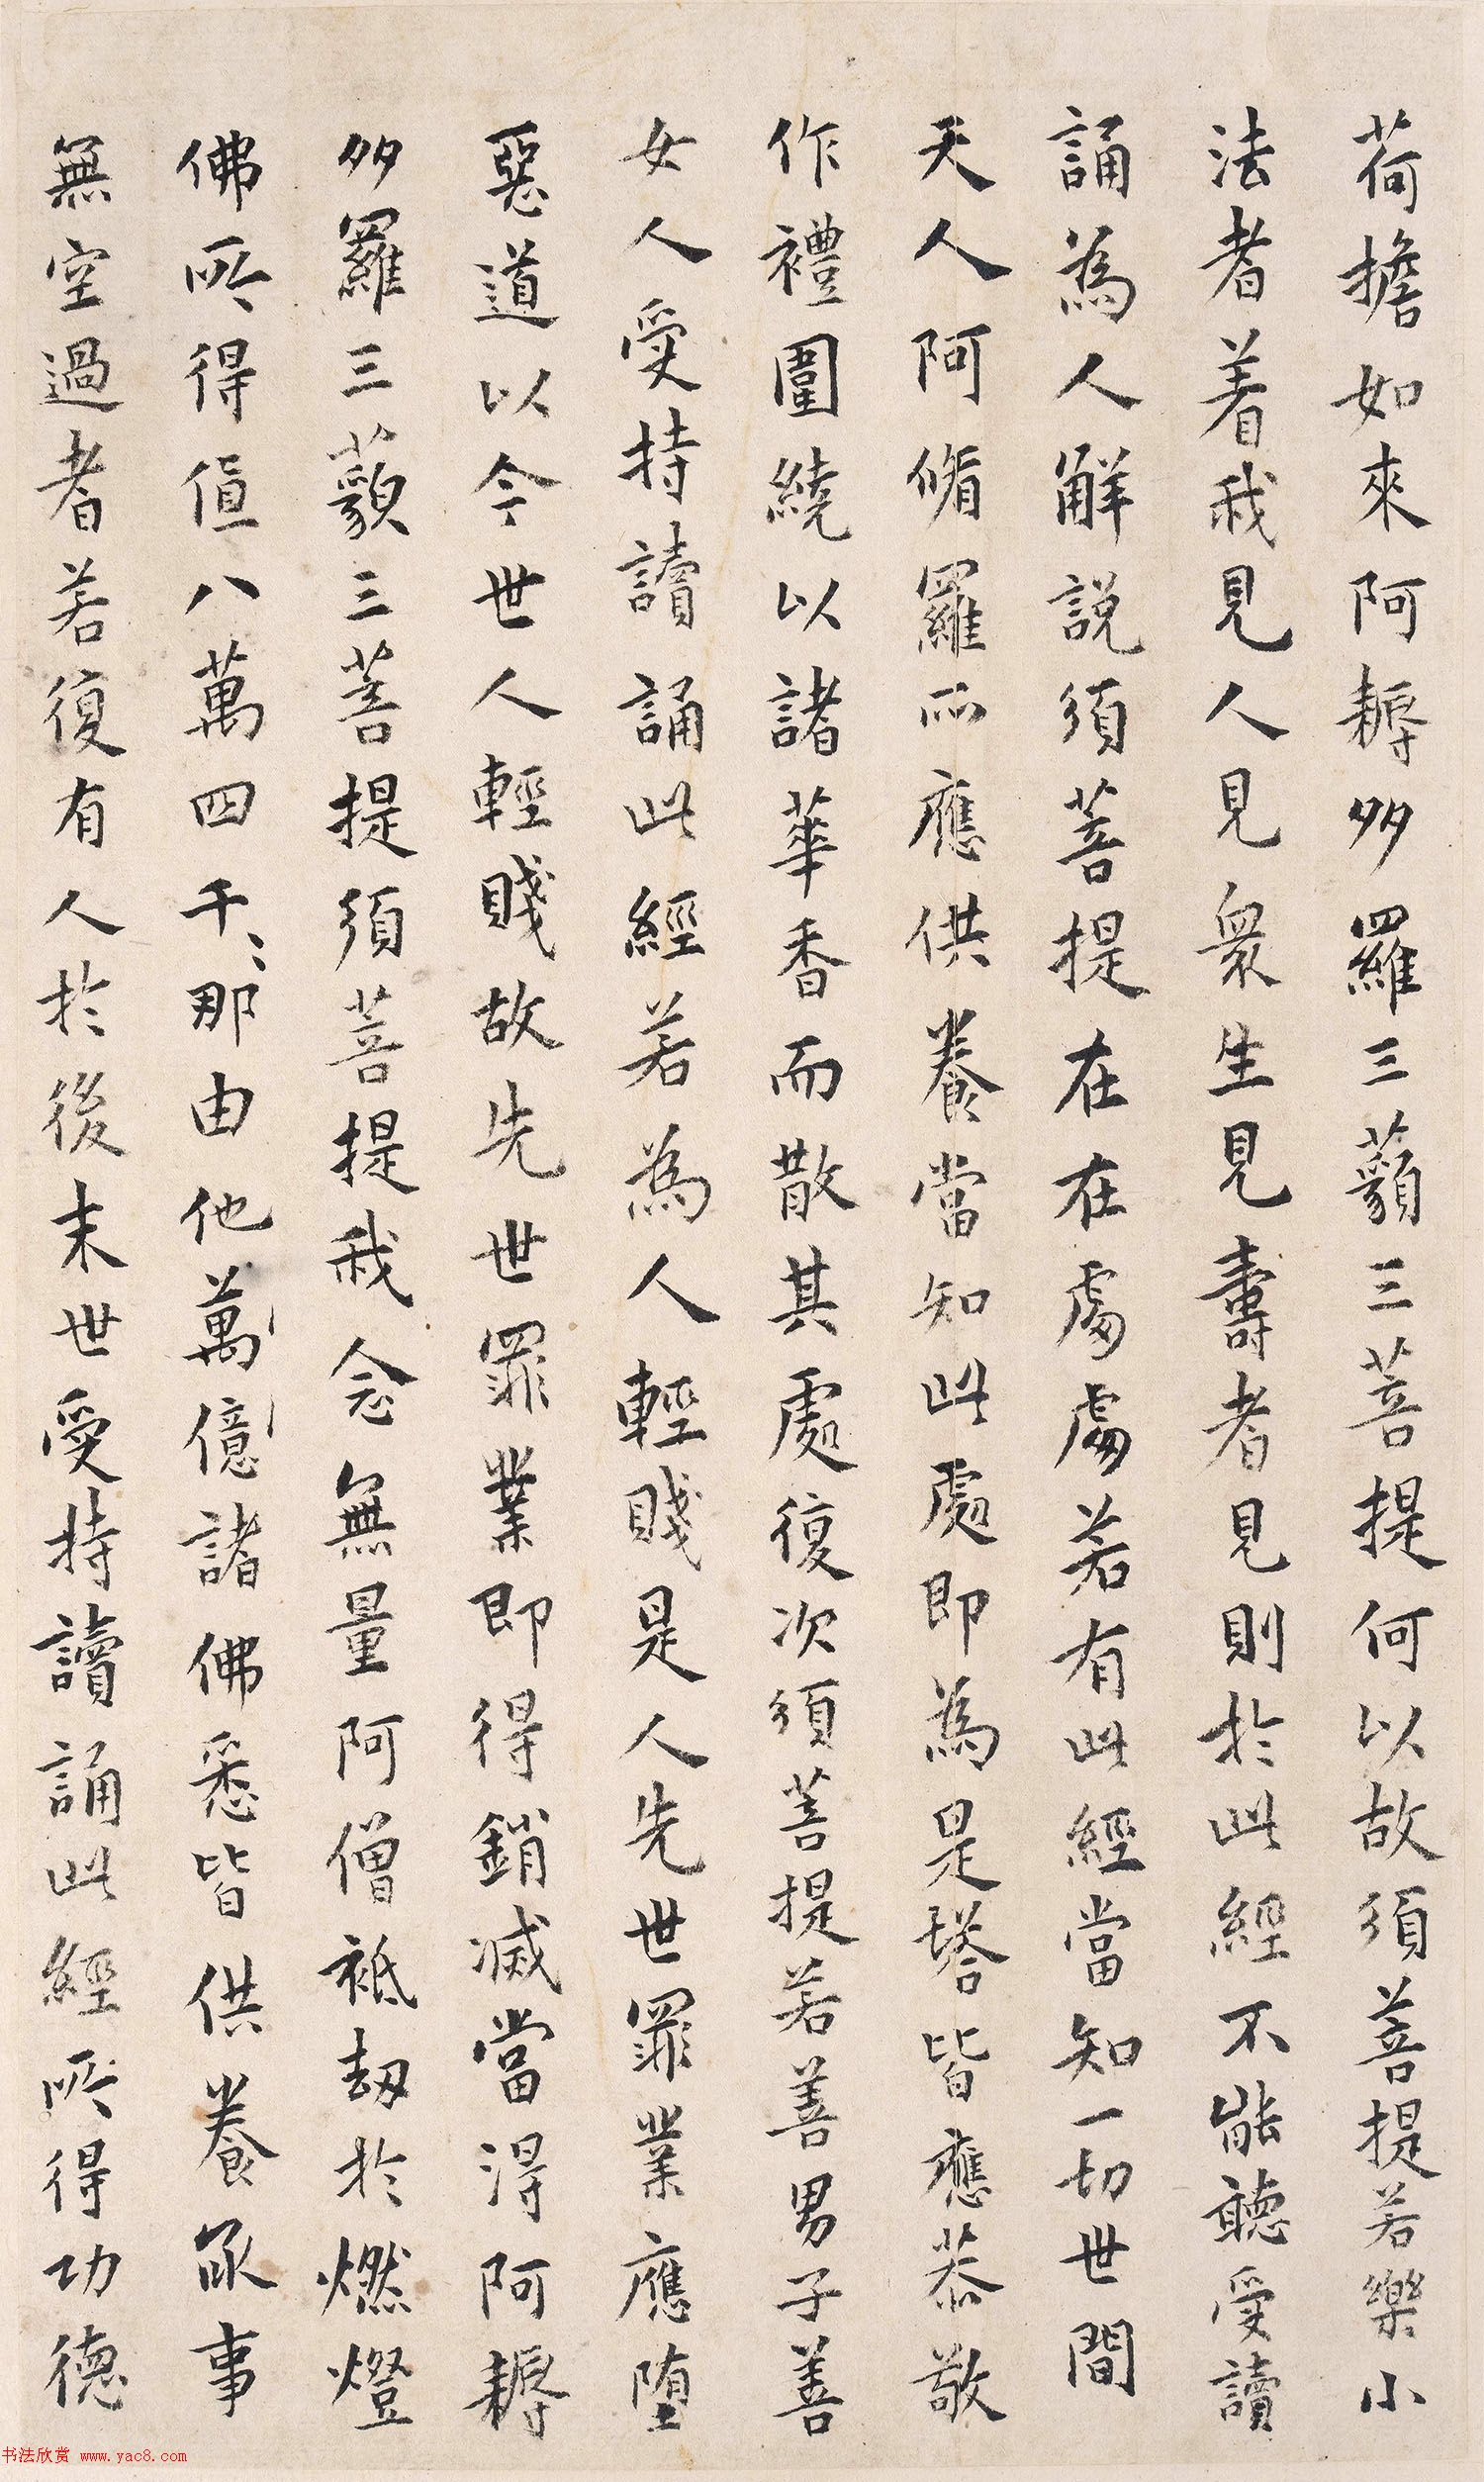 荷擔如來阿耨多羅三藐三菩提何以故須菩提若樂小
法者着我見人見衆生見壽者見則於此經不能聽受讀
誦為人解說須菩提在在處處若有此經當知一切世間
天人阿脩羅所應供養當知此處即為是塔皆應恭敬
作禮圍繞以諸華香而散其處復次須菩提若善男子善
女人受持讀誦此經若為人輕賤是人先世罪業應堕
惡道以今世人輕賤故先世罪業即得銷滅當得阿耨
多羅三藐三菩提須菩提我念無量阿僧祗劫於燃燈
佛所得值八萬四千〻那由他萬億諸佛悉皆供養承事
無空過者若復有人於後末世受持讀誦此經所得功德
书法欣赏 www.yac8.com